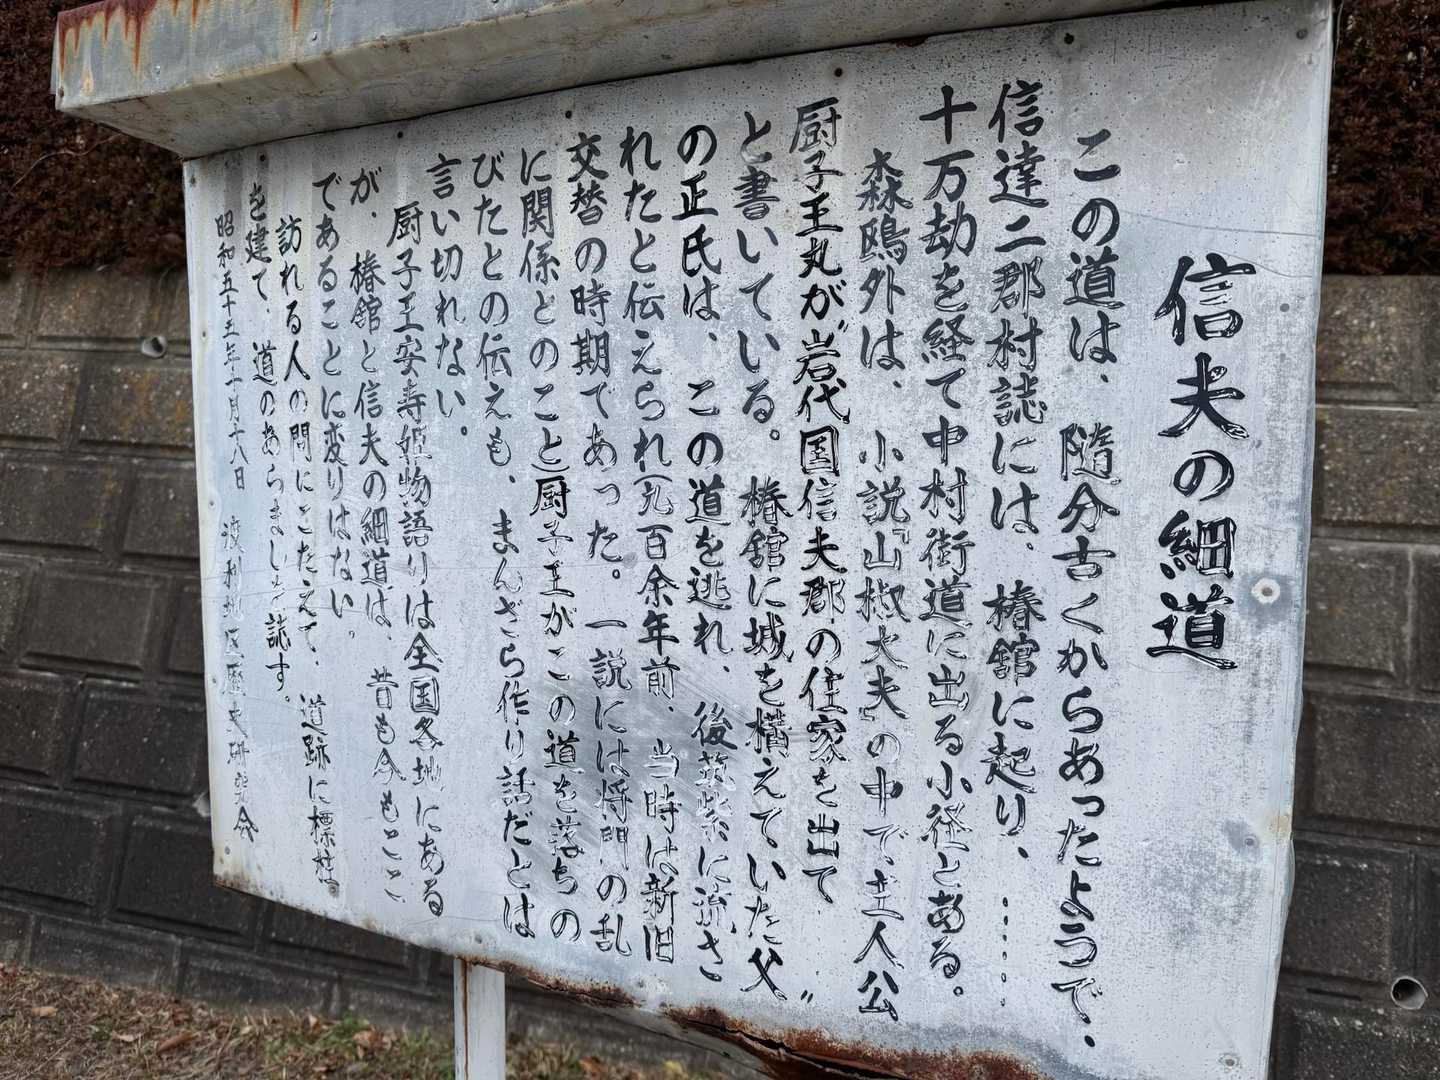 信夫の細道
この道は、随分古くからあったようで、
信達二郡村誌には、椿舘に起り、……
十万劫を経て中村街道に出る小径とある。
森鴎外は、小説「山椒大夫」の中で主人公
厨子王丸が〝岩代国信夫郡の住家を出て〟
と書いている。椿舘に城を構えていた父
の正氏は、この道を逃れ、後筑紫に流さ
れたと伝えられ(九百余年前、当時は新旧
交替の時期であった。一説には将門の乱
に関係とのこと)厨子王がこの道を落ちの
びたとの伝えも、まんざら作り話だとは
言い切れない。
厨子王安寿姫物語りは全国各地にある
が、椿舘と信夫の細道は、昔も今もここ
であることに変りはない。
訪れる人の問にこたえて、道跡に標柱
を建て、道のあらましを誌す。
昭和五十五年十月十八日 渡利地区歴史研究会